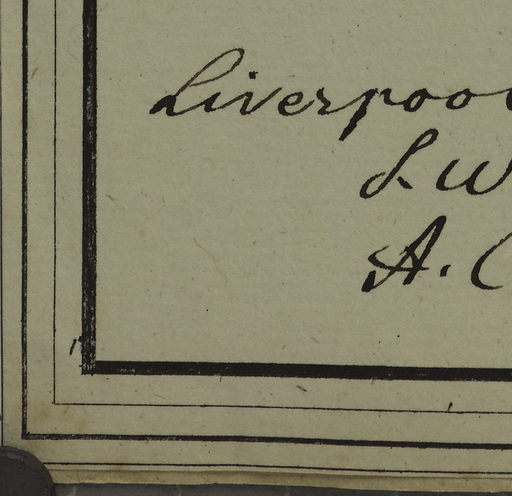 Liverpool
S. W
A. C